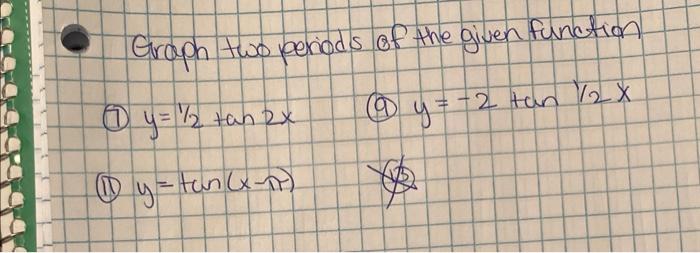 Graph two periods of the given function
⑦ y = 1/2 tan 2x
⑨ y = -2 tan 1/2 x
⑪ y = tan(x-π)